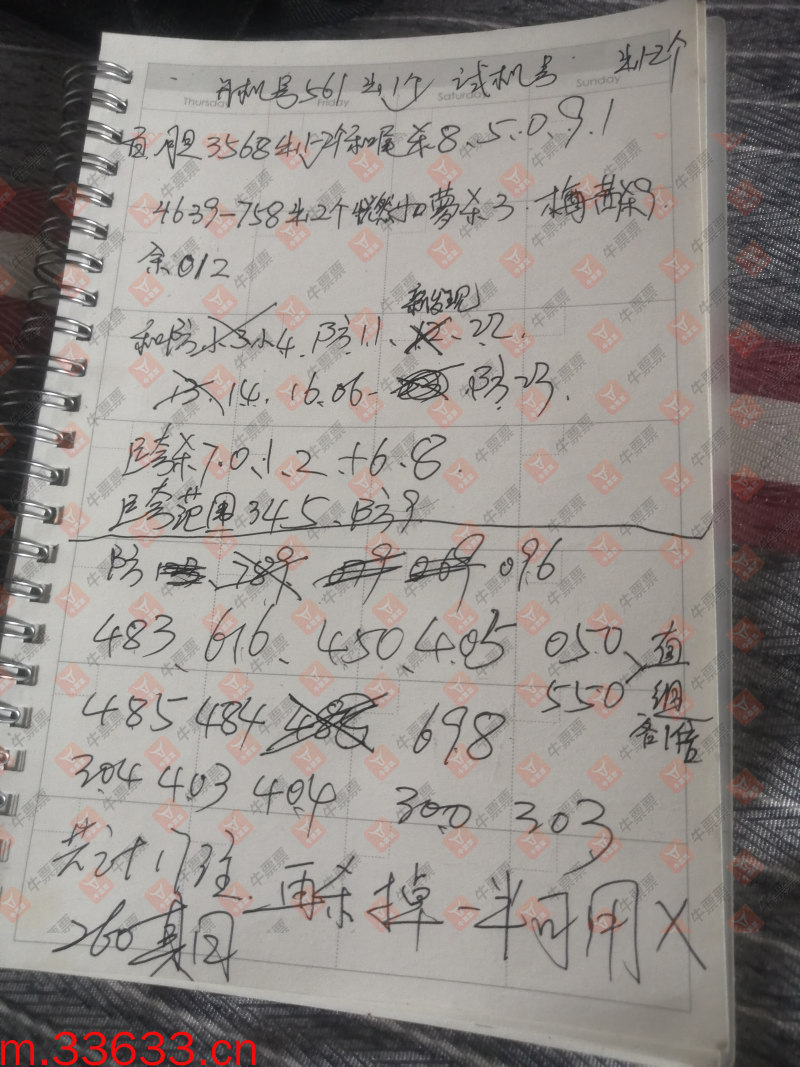 开机号561出1个 试机号 出1-2个
Thursday Friday Saturday Sunday
百胆3568出1-2个和尾杀8、5、0、9、1
4639-758出2个 杀3
余012
新发现
和防 小4、防11、22、
14、16、06- 防23、
跨杀7、0、1、2、+6、8
跨范围345、防9
防 789 079 069 096
483、616、450、405 050 直
550 组
各1倍
485 484 698
304 403 404 300 303
共计17注
再杀掉一半可用
260
牛票票
m.33633.cn